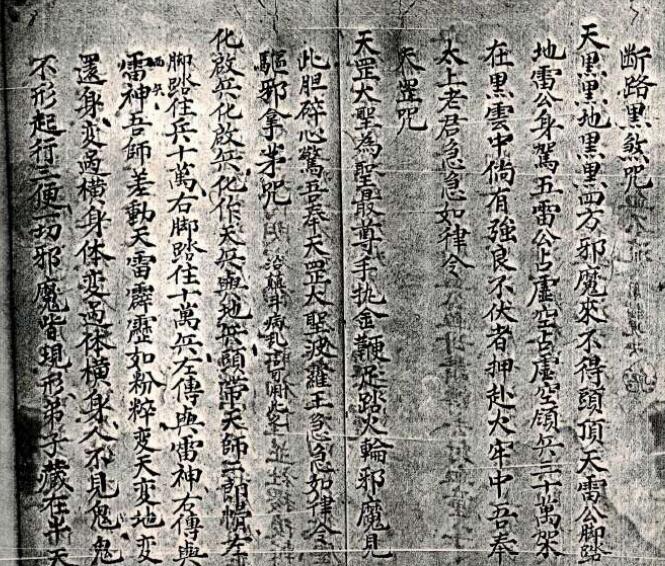 断路黑煞咒
天黑黑地黑黑四方邪魔來不得頭頂天雷公脚踏
地雷公身駕五雷公占虛空占虛空領兵三十萬架
在黑雲中倘有強良不伏者押赴火牢中吾奉
太上老君急急如律令
天罡咒
天罡大聖為聖最尊手挑金鞭足踏火輪邪魔見
此胆碎心驚吾奉天罡大聖波羅王急急如律令
驅邪拿茅咒
化啟兵化啟兵化作天兵與地兵頭帶天師二郎情左
脚踏住兵十萬右脚踏住十萬兵左傳與雷神右傳與
雷神吾師差動天雷霹靂如粉粹变天变地变
還身变過橫身体变過体橫身人不見鬼鬼
不形起行三便一切邪魔皆現形弟子藏在斗天